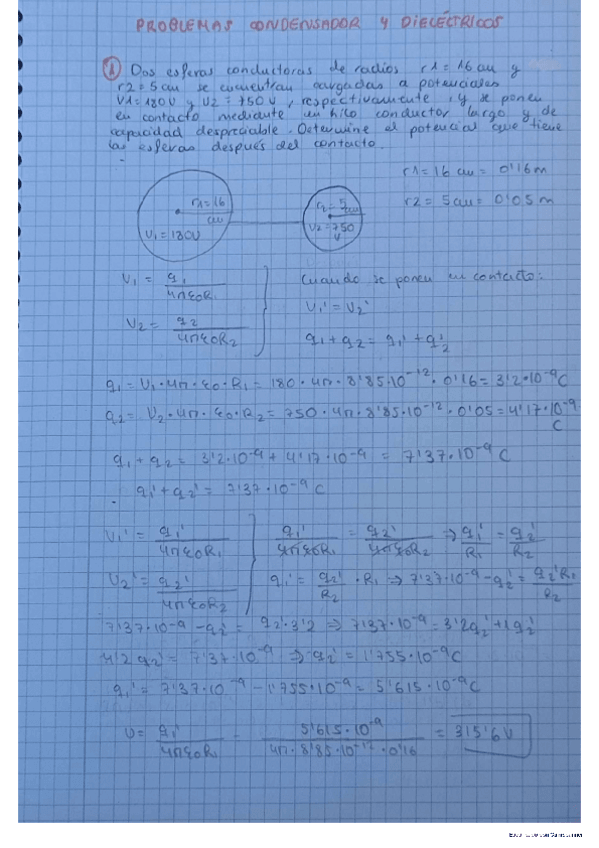 PROBLEMAS CONDENSADOR Y DIELÉCTRICOS
1 Dos esferas conductoras de radios r1=16 cm y
r2=5 cm se encuentran cargadas a potenciales
V1=180V y V2=750V, respectivamente, y se ponen
en contacto mediante un hilo conductor largo y de
capacidad despreciable. Determine el potencial que tiene
las esferas después del contacto.
r1=16 cm = 0'16 m
r1=16 cm
V1=180V
V2=750 V
r2 = 5 cm = 0'05 m
V1 = q1 / 4πε0R1
Cuando se ponen en contacto:
V1' = V2'
V2 = q2 / 4πε0R2
q1+q2 = q1'+q2'
q1 = V1·4π·ε0·R1 = 180·4π·8'85·10^-12·0'16 = 3'2·10^-9 C
q2 = V2·4π·ε0·R2 = 750·4π·8'85·10^-12·0'05 = 4'17·10^-9 C
q1+q2 = 3'2·10^-9 + 4'17·10^-9 = 7'37·10^-9 C
q1'+q2' = 7'37·10^-9 C
V1' = q1' / 4πε0R1
q1' / 4πε0R1 = q2' / 4πε0R2 ⇒ q1' / R1 = q2' / R2
V2' = q2' / 4πε0R2
q1' = q2' / R2 · R1 ⇒ 7'37·10^-9 - q2' = q2'R1 / R2
7'37·10^-9 - q2' = q2'·3'2 ⇒ 7'37·10^-9 = 3'2q2' + 1q2'
4'2 q2' = 7'37·10^-9 ⇒ q2' = 1'755·10^-9 C
q1' = 7'37·10^-9 - 1'755·10^-9 = 5'615·10^-9 C
V = q1' / 4πε0R1 = 5'615·10^-9 / 4π·8'85·10^-12·0'16 = 315'6 V